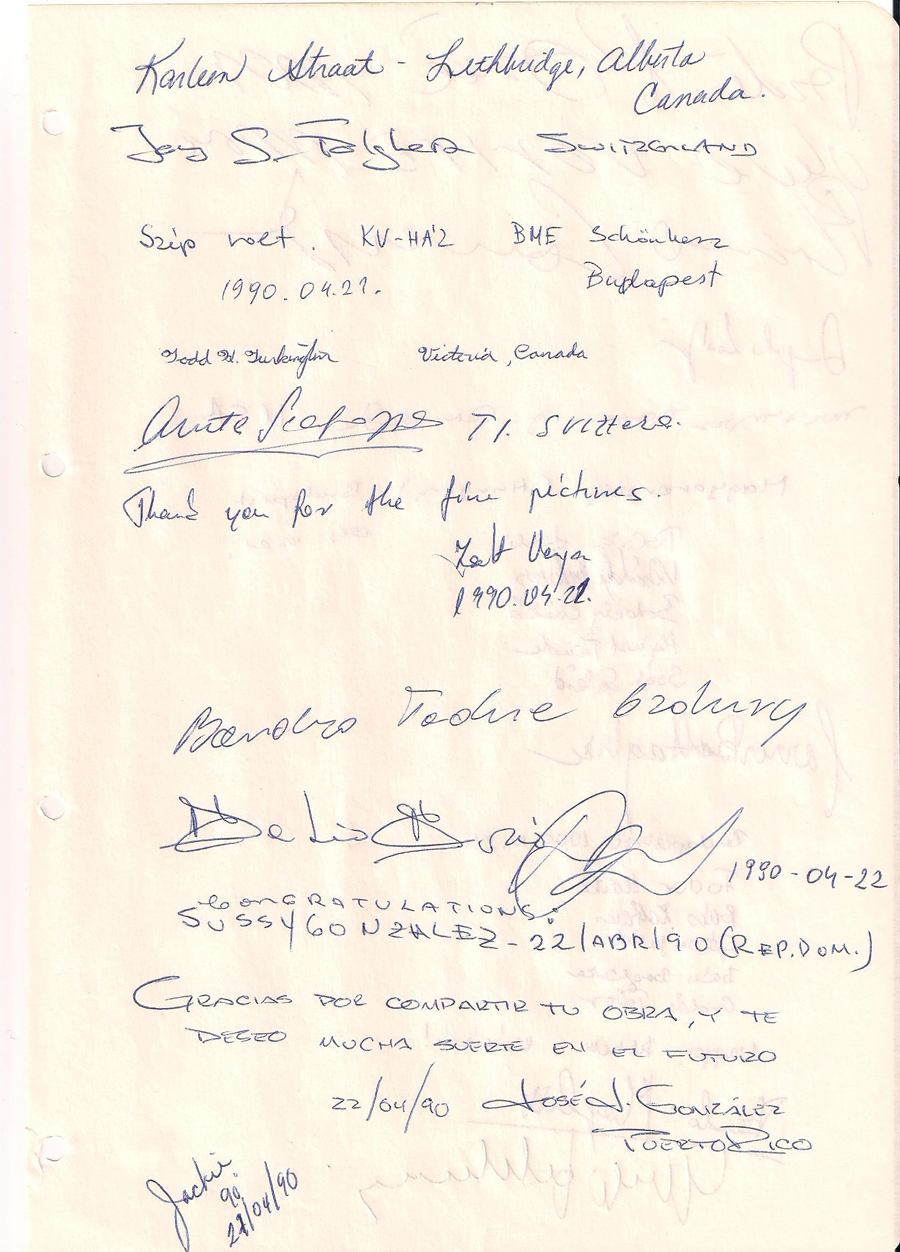 Karleen Straat - Lethbridge, Alberta
Canada.
Joy S. SWITZERLAND
Szép volt. KV-HÁZ BME Schönherz
1990.04.21. Budapest
Todd H. Turkington Victoria, Canada
Anita TI. SVIZZERA.
Thank you for the fine pictures.
Zsolt
1990.04.21.
1990-04-22
CONGRATULATIONS:
SUSSY GONZALEZ - 22/ABR/90 (REP. DOM.)
GRACIAS POR COMPARTIR TU OBRA, Y TE
DESEO MUCHA SUERTE EN EL FUTURO
22/04/90 JOSÉ J. GONZÁLEZ
PUERTO RICO
Jackie
90.
22/04/90